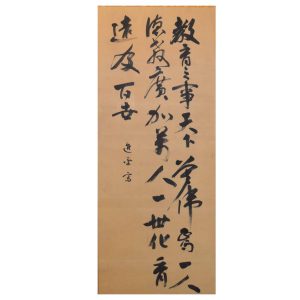 教育之事天下莫偉焉一人
徳教廣加萬人一世化育
遠及百世
進乎齋